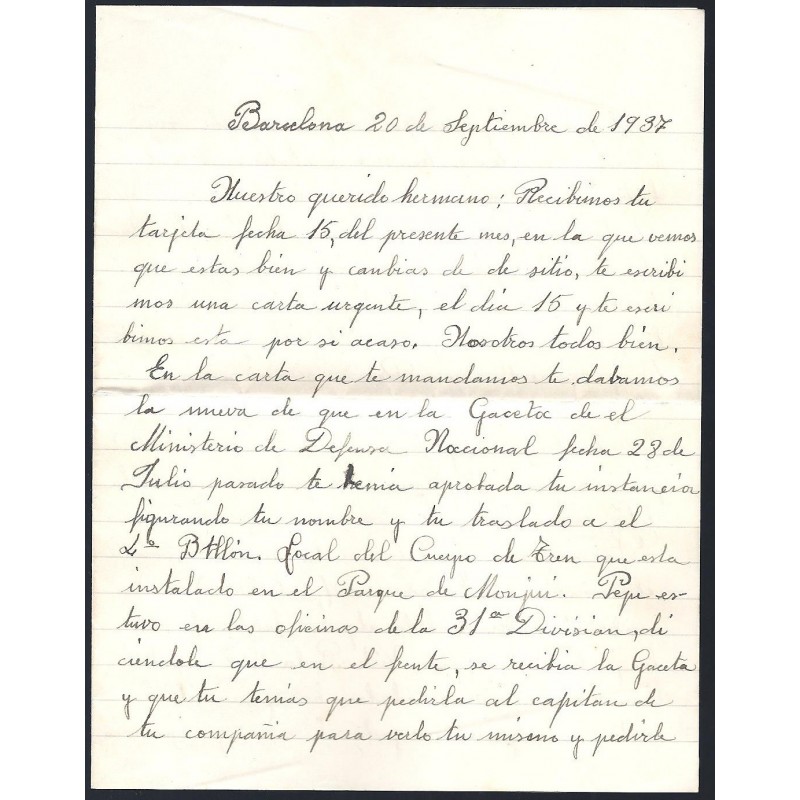 Barcelona 20 de Septiembre de 1937
Nuestro querido hermano; Recibimos tu
tarjeta fecha 15, del presente mes, en la que vemos
que estas bién y canbias de de sitio, te escribi
mos una carta urgente, el dia 15 y te escri
bimos esta por si acaso. Nosotros todos bién.
En la carta que te mandamos te dabamos
la nueva de que en la Gaceta de el
Ministerio de Defensa Nacional fecha 28 de
Julio pasado te venia aprobada tu instancia
figurando tu nombre y tu traslado a el
4º Btllón. Local del Cuerpo de Tren que esta
instalado en el Parque de Monjui. Pepe es-
tuvo en las oficinas de la 31ª Division, di
ciendole que en el frente, se recibia la Gaceta
y que tu tenias que pedirla al capitan de
tu compañia para verlo tu mismo y pedirle